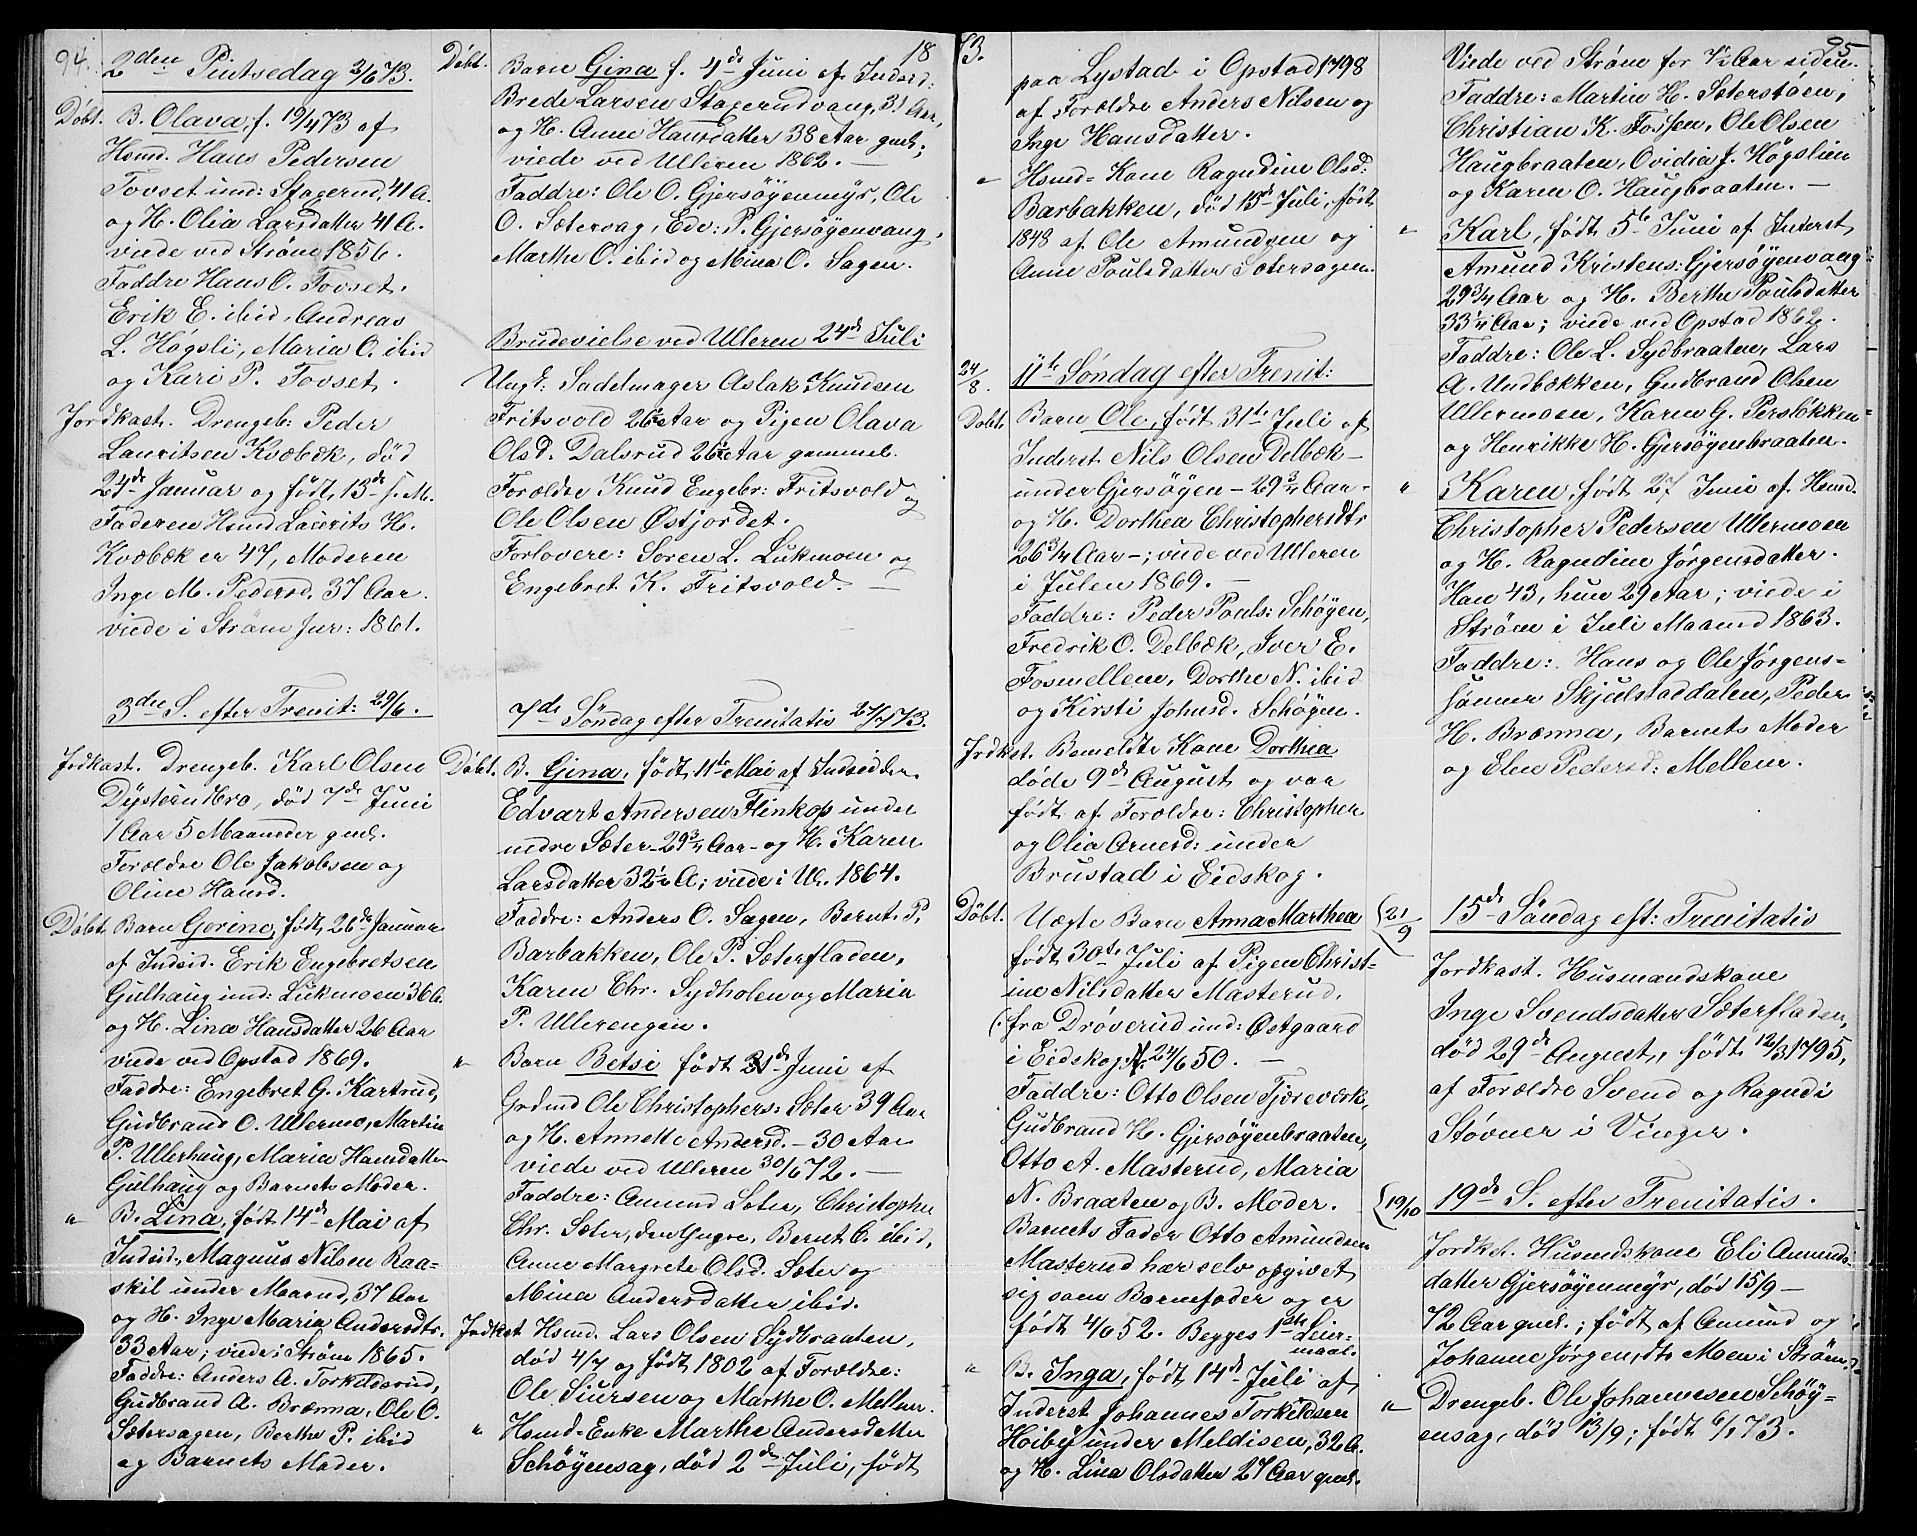 94.
2den Pintsedag 2/6 73.
Döbt. B. Olava, f. 19/4 73 af
Hsmd. Hans Pedersen
Tovset und: Skagerud, 41 A.
og H. Olia Larsdatter 41 A.
viede ved Ström 1856.
Faddre Hans O. Tovset.
Erik E. ibid, Andreas
L. Högsli, Maria O. ibid
og Kari P. Tovset.
Jordkast. Drengeb: Peder
Lauritsen Kvæbæk, död
24de Januar og födt 13de s. M.
Faderen Hsmd Laurits H.
Kvæbæk er 47, Moderen
Inge M. Pedersd. 37 Aar.
viede i Ström Jur: 1861.
3die S. efter Trenit: 29/6.
Jrdkast. Drengeb. Karl Olsen
Dysterudbro, död 7de Juni
1 Aar 5 Maaneder gml.
Forældre Ole Jakobsen og
Oline Hansd.
Döbt. Barn Gorine, födt 26de Januar
af Indsid. Erik Engebretsen
Gulhaug und: Lukmoen 36 A.
og H. Lina Hansdatter 26 Aar
viede ved Opstad 1869.
Faddre: Engebret G. Kartrud,
Gudbrand O. Ullermo, Martin
P. Ullerhaug, Maria Hansdatter
Gulhaug og Barnets Moder.
" B. Lina, födt 14de Mai af
Indsid. Magnus Nilsen Raa=
skil under Maarud, 37 Aar
og H. Inge Maria Andersdtr.
33 Aar; viede i Ström 1865.
Faddre: Anders A. Torkildsrud,
Gudbrand A. Brænna, Ole O.
Sætersagen, Berthe P. ibid
og Barnets Moder.
18
Döbt. Barn Gina f. 4de Juni af Indsd:
Brede Larsen Skagerudvang, 31 Aar,
og H. Anne Hansdatter 38 Aar gml;
viede ved Ulleren 1862. —
Faddre: Ole O. Gjersöyenmyr, Ole
O. Sætersag, Edv: P. Gjersöyenvang,
Marthe O. ibid og Mina O. Sagen.
Brudevielse ved Ulleren 24de Juli
Ungk: Sadelmager Aslak Knudsen
Fritsvold 26 Aar og Pigen Olava
Olsd. Dalsrud 26 Aar gammel.
Forældre Knud Engebr: Fritsvold og
Ole Olsen Østjordet.
Forlovere: Soren L. Lukmoen og
Engebret K. Fritsvold. —
7de Söndag efter Trenitatis 27/7 73.
Döbt. B. Gina, födt 11te Mai af Indsidder
Edvart Andersen Flinkop under
nedre Sæter – 29 3/4 Aar – og H. Karen
Larsdatter 32 1/2 A; viede i Ul. 1864.
Faddre: Anders O. Sagen, Bernt P.
Barbakken, Ole P. Sæterfladen,
Karen Chr. Sydholen og Maria
P. Ullerengen.
" Barn Betsi födt 21de Juni af
Grdmd Ole Christophers: Sæter 39 Aar
og H. Annette Andersd. – 30 Aar
viede ved Ulleren 30/6 72. —
Faddre: Amund Sæter, Christopher
Chr. Sæter, den Yngre, Bernt C. ibid,
Anne Margrete Olsd. Sæter og
Mina Andersdatter ibid.
Jrdkast Hsmd. Lars Olsen Sydbraaten,
död 4/7 og födt 1802 af Forældre:
Ole Siursen og Marthe O. Mellem.
" Hsmd-Enke Marthe Andersdatter
Schöyensag, död 2den Juli, födt
73.
paa Lystad i Opstad 1798
af Forældre Anders Nilsen og
Inge Hansdatter.
" Hsmd= Kone Ragndine Olsd:
Barbakken, död 15de Juli, födt
1848 af Ole Amundsen og
Anne Poulsdatter Sætersagen.
24/8. 11te Söndag efter Trenit:
Döbt. Barn Ole, födt 31te Juli af
Inderst Nils Olsen Delbæk –
under Gjersöyen – 29 3/4 Aar –
og H. Dorthea Christophersdtr
26 3/4 Aar –; viede ved Ulleren
i Julen 1869. –
Faddre: Peder Pouls: Schöyen,
Fredrik O. Delbæk, Iver E.
Fosmellem, Dorthe N. ibid
og Kirsti Johnsd. Schöyen.
Jrdkst. Bemeldte Kone Dorthea
döde 9de August og var
födt af Forældre: Christopher
og Olia Arnesd: under
Brustad i Eidskog.
Döbt. Uægte Barn Anna Marthea
födt 30te Juli af Pigen Christ=
ine Nilsdatter Masterud.
(: fra Dröverud und: Östgaard
i Eidskog, 24/6 50. —
Faddre: Otto Olsen Tjæreverk,
Gudbrand H. Gjersöyenbraaten,
Otto A. Masterud, Maria
N. Braaten og B. Moder.
Barnets Fader Otto Amundsen
Masterud har selv opgivet
sig som Barnefader og er
födt 4/6 52. Begges 1ste Leier=
maal.
" B. Inga, födt 14de Juli af
Inderst Johannes Torkildsen
Hoiby under Meldisen, 32 A.
og H. Lina Olsdatter 27 Aar gml.
95
Viede ved Ström for 7 1/2 Aar siden.
Faddre: Martin H. Sæterstöen,
Christian K. Fossen, Ole Olsen
Haugbraaten, Ovidia J. Högslien
og Karen O. Haugbraaten. —
" Karl, födt 5te Juni af Inderst
Amund Kristens: Gjersöyenvang
29 3/4 Aar og H. Berthe Poulsdatter
33 1/4 Aar; viede ved Opstad 1862.
Faddre: Ole L. Sydbraaten, Lars
A. Undbækken, Gudbrand Olsen
Ullermoen, Karen G. Persløkken
og Henrikke H. Gjersöyenbraaten.
" Karen, födt 27 Juni af Hsmd.
Christopher Pedersen Ullermoen
og H. Ragndine Jörgensdatter.
Han 43, hun 29 Aar; viede i
Ström i Juli Maaned 1863.
Faddre: Hans og Ole Jörgens=
sönner Skjulstaddalen, Peder
H. Brænna, Barnets Moder
og Elen Pedersd: Mellem.
21/9 15de Söndag eft: Trenitatis
Jordkast. Husmandskone
Inge Svendsdatter Sæterfladen,
död 29de August, födt 12/3 1795,
af Forældre Svend og Ragndi
Stövner i Vinger.
19/10 19de S. efter Trenitatis.
Jordkst. Husmdskone Eli Amunds=
datter Gjersöyenmyr, död 15/9 –
72 Aar gml.; födt af Amund og
Johanne Jörgensdtr Moen i Ström.
" Drengeb. Ole Johannesen Schöy=
ensag, död 13/9; födt 6/1 73.